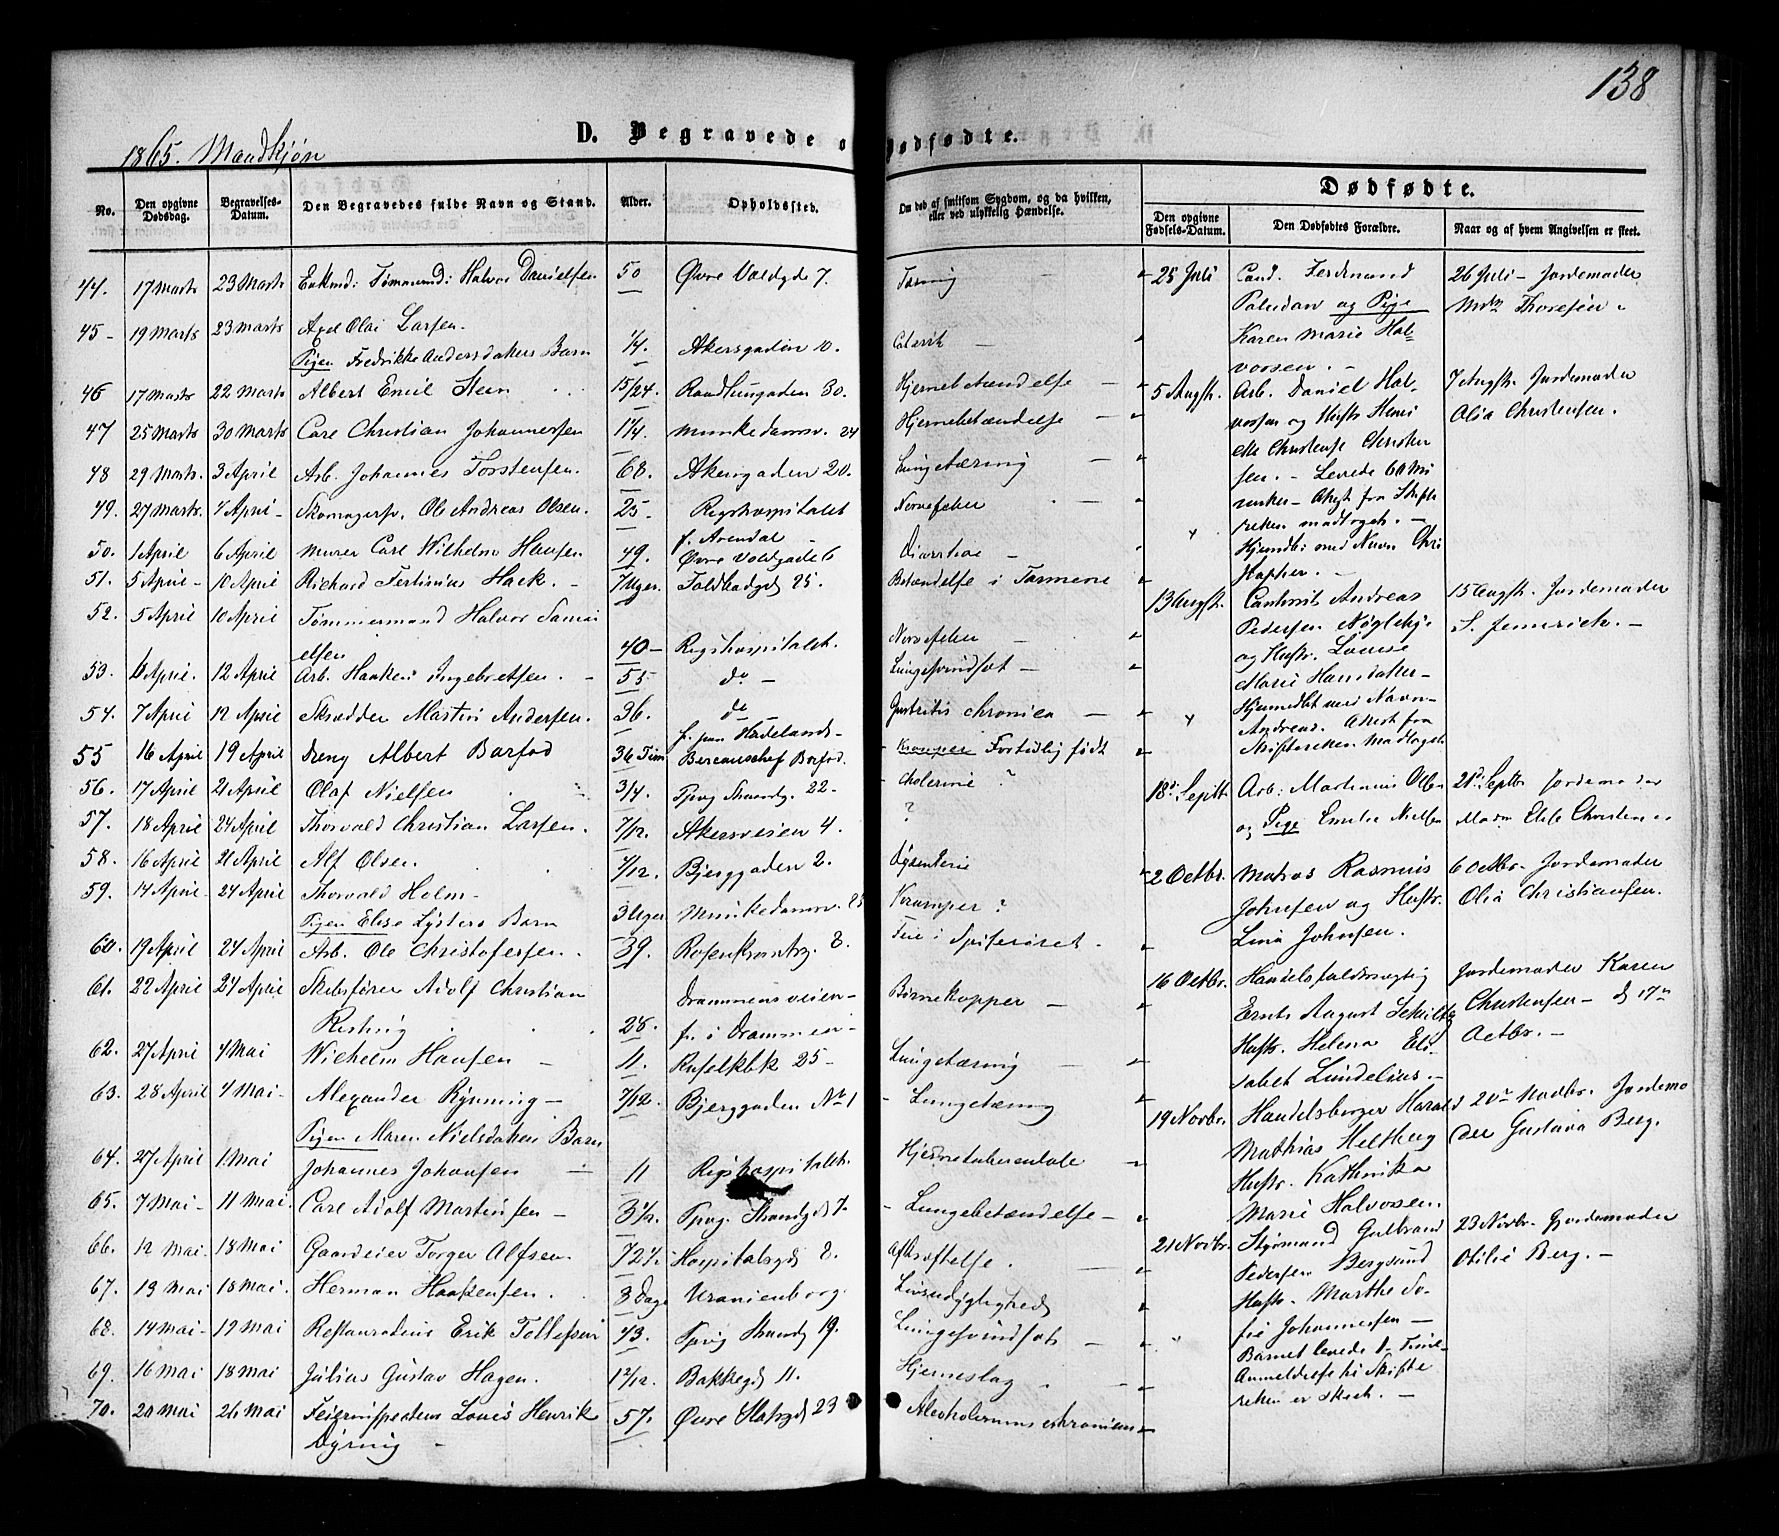 138
D. Begravede o
Dødfødte.
1865. Mandkjøn
Dødfødte.
No.
Den opgivne Dødsdag.
Begravelses-Datum.
Den Begravedes fulde Navn og Stand.
Alder.
Opholdssted.
Om død af smitsom Sygdom, og da hvilken, eller ved ulykkelig Hændelse.
Den opgivne Fødsels-Datum.
Den Dødfødtes Forældre.
Naar og af hvem Angivelsen er skeet.
44. 17 Marts 23 Marts Enkmd: Tømmermd: Halvor Danielsen 50 Øvre Voldgde 7. Tæring
45 - 19 Marts 23 Marts Axel Olai Larsen.
Pigen Fredrikke Andersdatters Barn 1/4. Akersgaden 10. Catarrh
46 17 Marts 22 Marts Albert Emil Steen 15/24. 30. Hjernebetændelse
47 25 Marts 30 Marts Carl Christian Johannessen 1 1/4. Munkedamsv. 24 Hjernebetændelse
48 29 Marts. 3 April Arb. Johannes Torstensen. 68. Akersgaden 20. Lungetæring
49. 27 Marts. 4 April - Skomagersv. Ole Andreas Olsen. 25. Rigshospitalet Nervefeber
f. Arendal
50. 1 April 6 April Murer Carl Wilhelm Hansen 49. Øvre Voldgade 6 Diarrhoe
51. 5 April - 10 April Richard Hack. - 7 Uger. Toldbodgd 25. Betændelse i Tarmene
52. 5 April 10 April Tømmermand Halvor Samu
elsen 40 - Rigshospitalet. Nervefeber
53. 6 April. 12 April Arb. Haaken Ingebretsen. 55 do - Lungesvindsot
54. 7 April 12 April Skrædder Martin Andersen. 36. do Gastritis chronica
f. paa Hadeland
55 16 April 19 April Dreng Albert Barfod 36 Tim Bereauschef Barfod. Kramper For tidlig født
56. 17 April 21 April Olaf Nielsen 3/4. Tpvg Strandg. 22. Cholerine ?
57. 18 April 24 April Thorvald Christian Larsen. 7/12. Akersveien 4. ?
58. 16 April 21 April Alf Olsen. 4/12. Bjerggaden 2. Dysenterie
59. 14 April 24 April Thorvald Holm -
Pigen Elise Lysters Barn 3 Uger Munkedamsv. 25 Kramper ?
60. 19 April 24 April Arb. Ole Christofersen. 39. Rosenkrantzg. 8. Feil i Spiserøret.
61. 22 April 24 April Skibsfører Adolf Christian Drammensveien -
28. fr. i Drammen - Børnekopper
62. 27 April 4 Mai Wilhelm Hansen - 11. 25 - Lungetæring
63. 28 April 4 Mai - Alexander Rynning -
Pigen Maren Nielsdatters Barn 7/12. Bjerggaden No 1 Lungetæring
64. 27 April 1 Mai Johannes Johansen 11 Rigshospitalet.
65. 7 Mai - 11 Mai. Carl Adolf Martinsen - 3 1/2. Tpvg. Strandgd 7. Lungebetændelse
66. 12 Mai. 18 Mai Gaardeier Torger Alfsen. 72 1/2 Hospitalsgd 8. Afkræftelse.
67. 13 Mai 18 Mai. Herman Haakensen. 3 Dage Uranienborg. Livsudygtighed
68. 14 Mai - 19 Mai Restauratør Erik Tollefsen 43. Tpvg Strandg 19. Lungesvindsot
69. 16 Mai 18 Mai Julius Gustav Hagen. 1 2/12. Bakkegd 11. Hjerneslag
70. 20 Mai 26 Mai Feierinspecteur Louis Henrik 57. Øvre Slotsgd 23 Alcoholismus chronicus
Dyring -
25 Juli Cand. Ferdinand 26 Juli - Jordemoder
Paludan og Pige Thoresen.
Karen Marie Hal-
vorsen. -
5 Augst. Arb. Daniel Hal- 7 Augst. Jordemoder
vorsen og Hustr Henri Olia Christensen.
ette Christense Christen
sen. - Levede 60 Mi
nutter - Attest fra Skifte
retten modtaget. -
Hjemdbt med Navn Chri
stopher. -
13 Augst. Cantonist Andreas 15 Augst. Jordemoder
Pedersen Nøgleby S. Jennerich. -
og Hustr. Lovise
Marie Hansdatter -
Hjemmedbt med Navn -
Andreas. Attest fra
Skifteretten Modtaget
18d Septbr Arb: Martinius Olsen 21d Septbr Jordemoder
og Pige Emilie Nielsen Christense
2 Octbr. Matros Rasmus 6 Octbr. Jordemoder
Johnsen og Hustr. Olia Christiansen.
Lina Johnsen.
16 Octbr. Handelsfuldmægtig Jordemoder Karen
Ernst August Schiltz Christensen - d 17de
Hustr. Helena Eli- Octbr. -
sabet Lundelius. -
19 Novbr. Handelsborger Harald 20de Novbr. Jordemo
Mathias Heltberg der Gustava Berg.
Hustr. Kathinka
Marie Halvorsen.
21 Novbr. Styrmand Gulbrand 23 Novbr. Jordemoder
Pedersen Bergsund Otilie Berg. -
Hustr. Marthe So-
fie Johannessen -
Barnet levede 1 Time -
Anmeldelse til Skifte
retten er skeet. -